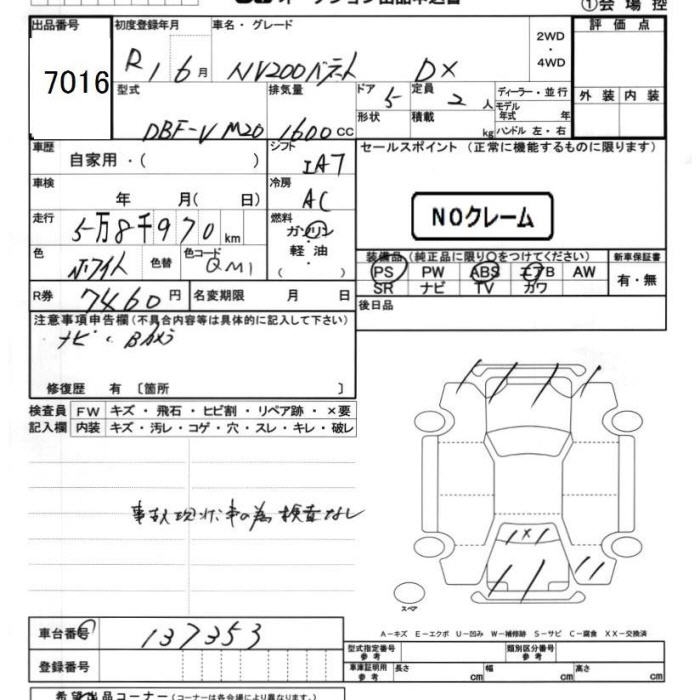 オークション出品申込書 ①会場控
出品番号 初度登録年月 車名・グレード 2WD・4WD 評価点
7016 R1 6月 NV200バネット DX
型式 排気量 ドア 5 定員 2人 ディーラー・並行 外装 内装
形状 積載 kg モデル年式 年
DBF-VM20 1600 CC ハンドル 左・右
車歴 自家用・( ) シフト IA7 セールスポイント (正常に機能するものに限ります)
車検 年 月( 日) 冷房 AC
NOクレーム
走行 5万8千970 km 燃料 ガソリン 軽・油 ・( )
色 ホワイト 色替 色コード QM1 装備品 (純正品に限り○をつけてください) 新車保証書
PS PW ABS エアB AW 有・無
SR ナビ TV カワ
R券 7460円 名変期限 月 日 後日品
注意事項申告欄 (不具合内容等は具体的に記入して下さい)
ナビ・Bカメラ
修復歴 有 〔箇所 〕
検査員 FW キズ・飛石・ヒビ割・リペア跡・×要
記入欄 内装 キズ・汚レ・コゲ・穴・スレ・キレ・破レ
事故現状車の為 検査なし
スペア
A-キズ E-エクボ U-凹み W-補修跡 S-サビ C-腐食 XX-交換済
車台番号 137353
型式指定番号 参考 類別区分番号 参考
登録番号 車庫証明用 参考 長さ cm 幅 cm 高さ cm
希望出品コーナー (コーナーは各会場により異なります。)